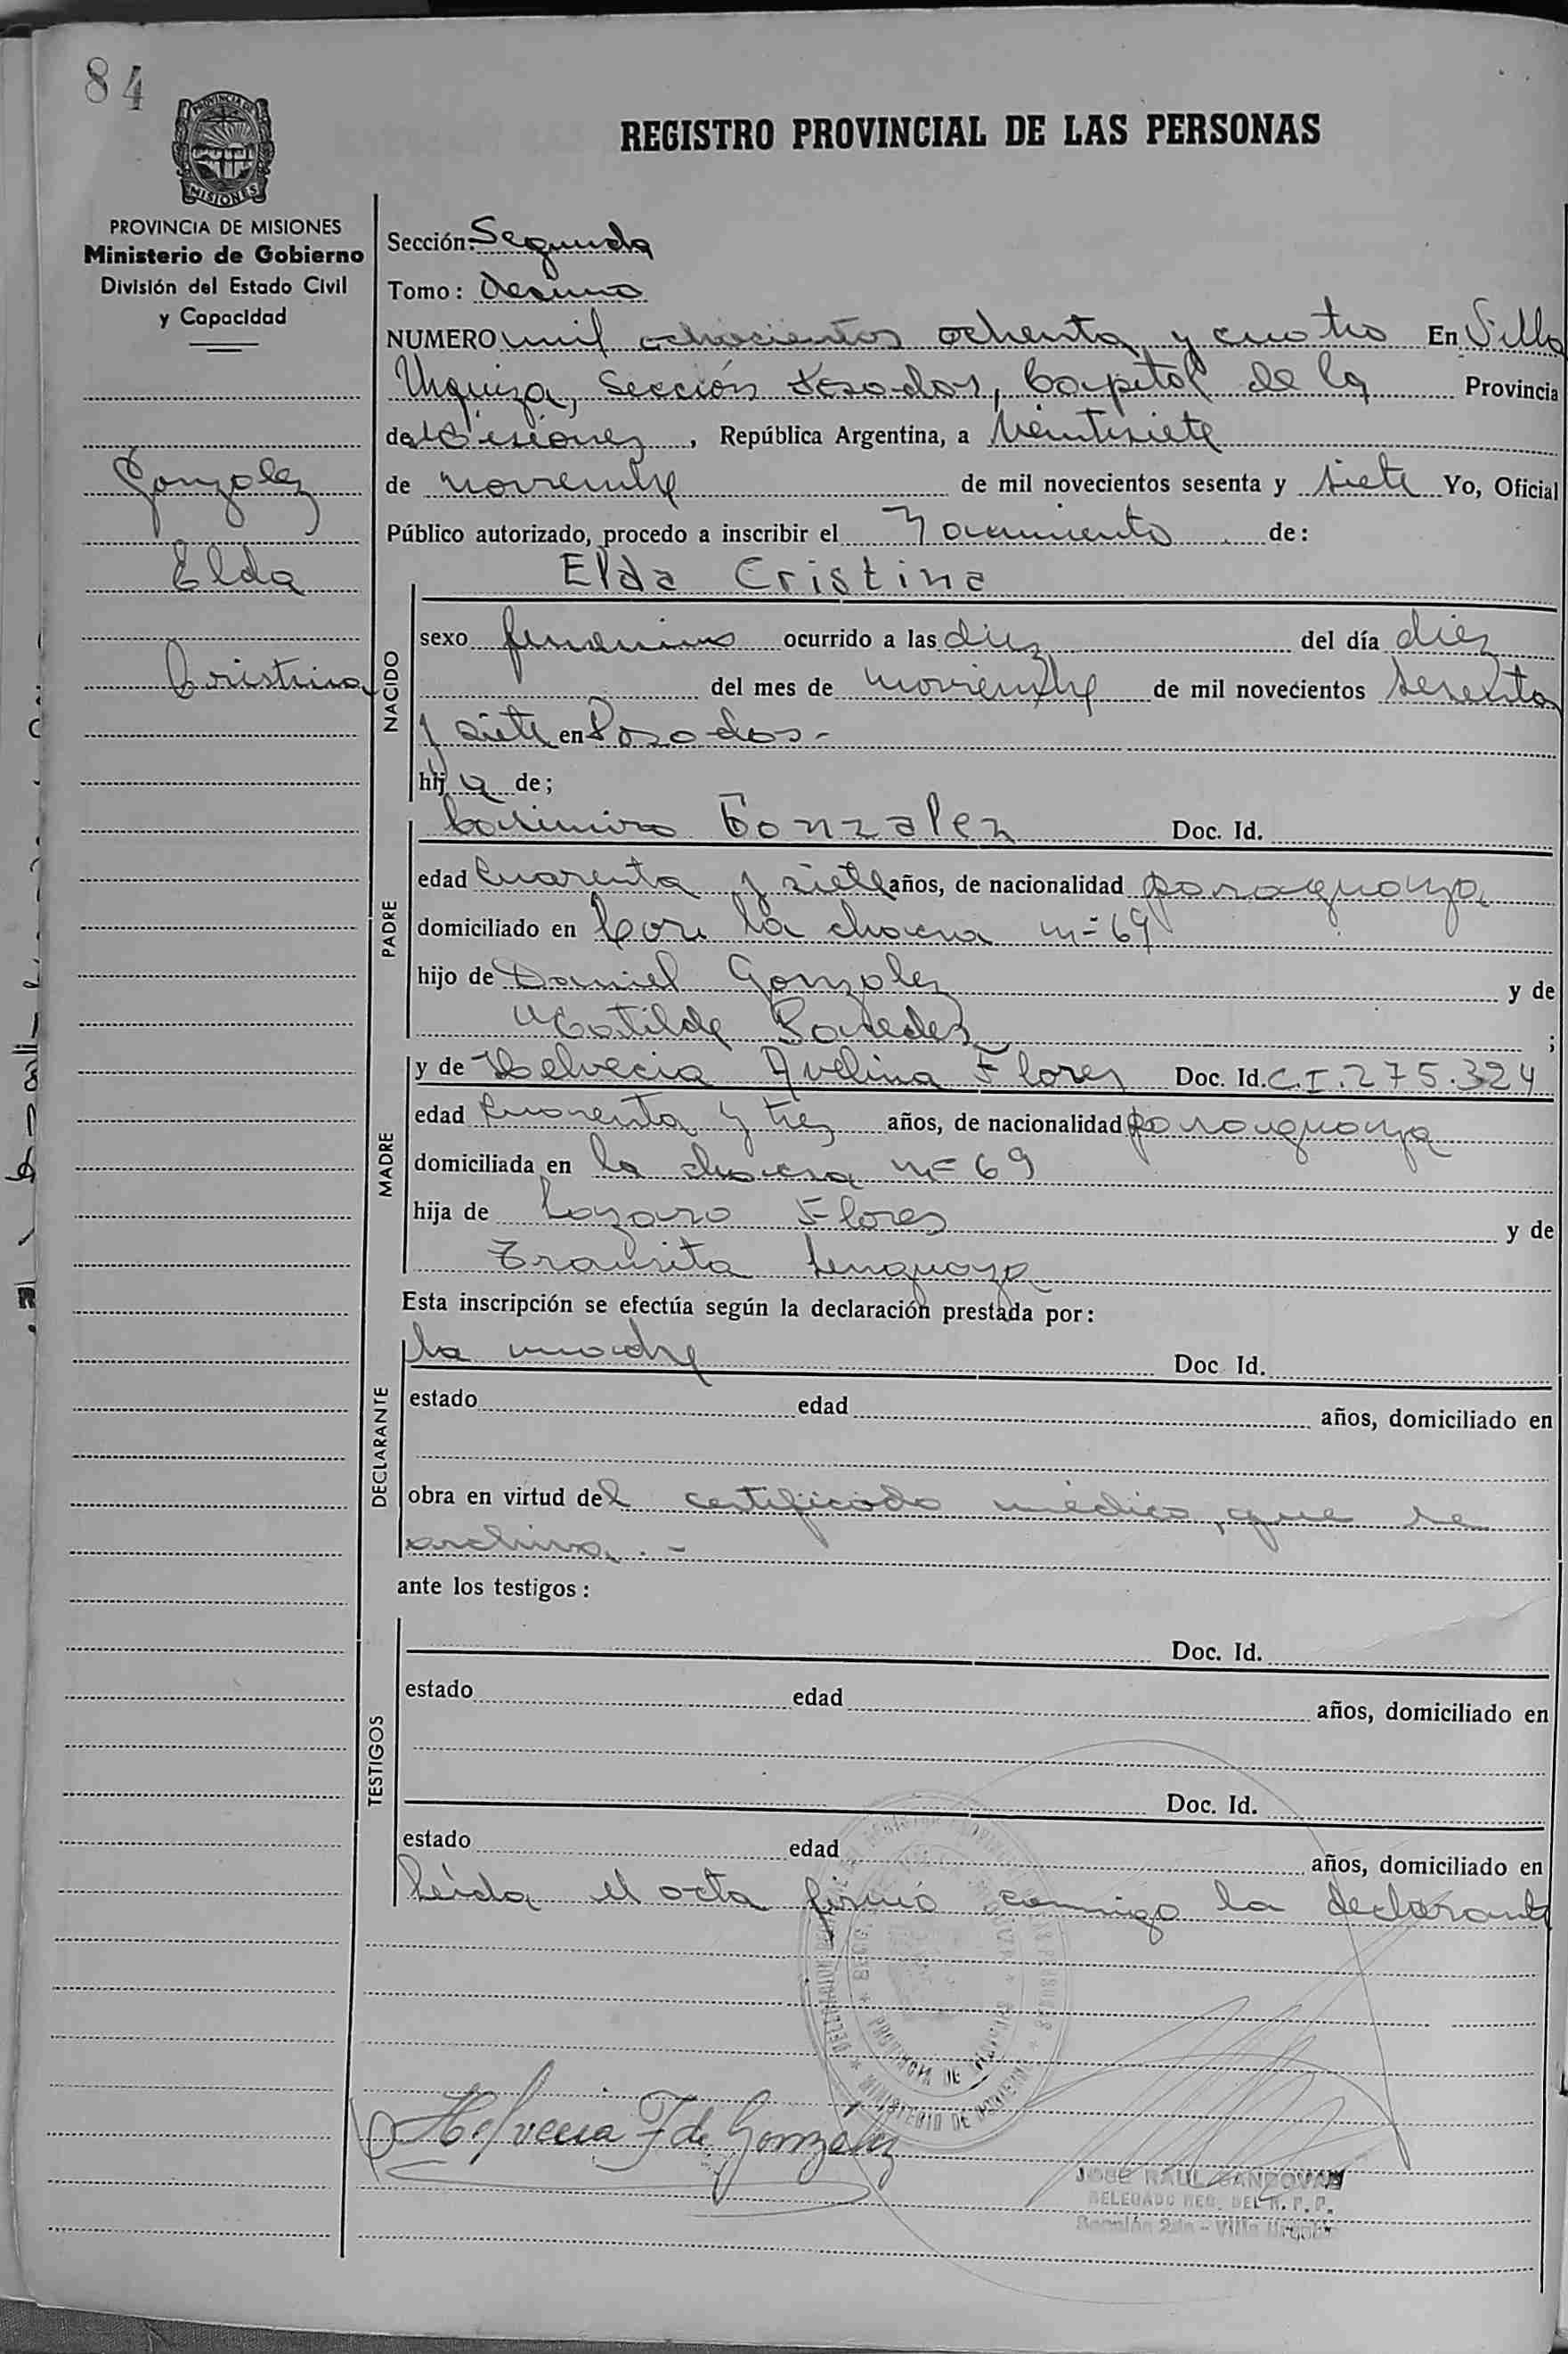 84
PROVINCIA DE
MISIONES
REGISTRO PROVINCIAL DE LAS PERSONAS
PROVINCIA DE MISIONES
Ministerio de Gobierno
División del Estado Civil
y Capacidad
Gonzalez
Elda
Cristina
Sección: Segunda
Tomo: Decimo
NUMERO mil ochocientos ochenta y cuatro En Villa
Urquiza, Sección Posadas, Capital de la Provincia
de Misiones, República Argentina, a Veintisiete
de noviembre de mil novecientos sesenta y siete Yo, Oficial
Público autorizado, procedo a inscribir el Nacimiento de:
NACIDO
Elda Cristina
sexo femenino ocurrido a las diez del día diez
del mes de noviembre de mil novecientos sesenta
y siete en Posadas-
hija de;
PADRE
Casimiro Gonzalez Doc. Id.
edad Cuarenta y siete años, de nacionalidad paraguaya
domiciliado en la chacra n=69
hijo de Daniel Gonzalez y de
Matilde Paredes ;
MADRE
y de Helvecia Avelina Flores Doc. Id. C.I.275.324
edad Cuarenta y tres años, de nacionalidad paraguaya
domiciliada en la chacra n=69
hija de Lazaro Flores y de
Transita Lenguaza
Esta inscripción se efectúa según la declaración prestada por:
DECLARANTE
la madre Doc. Id.
estado edad años, domiciliado en
obra en virtud del certificado médico, que se
archiva.-
ante los testigos:
TESTIGOS
Doc. Id.
estado edad años, domiciliado en
Doc. Id.
estado edad años, domiciliado en
Leida el acta firmó conmigo la declarante
PROVINCIA DE MISIONES
MINISTERIO DE GOBIERNO
Helvecia F de Gonzalez
JOSE RAUL SANDOVAL
DELEGADO REG. DEL R. P. P.
Sección 2da - Villa Urquiza